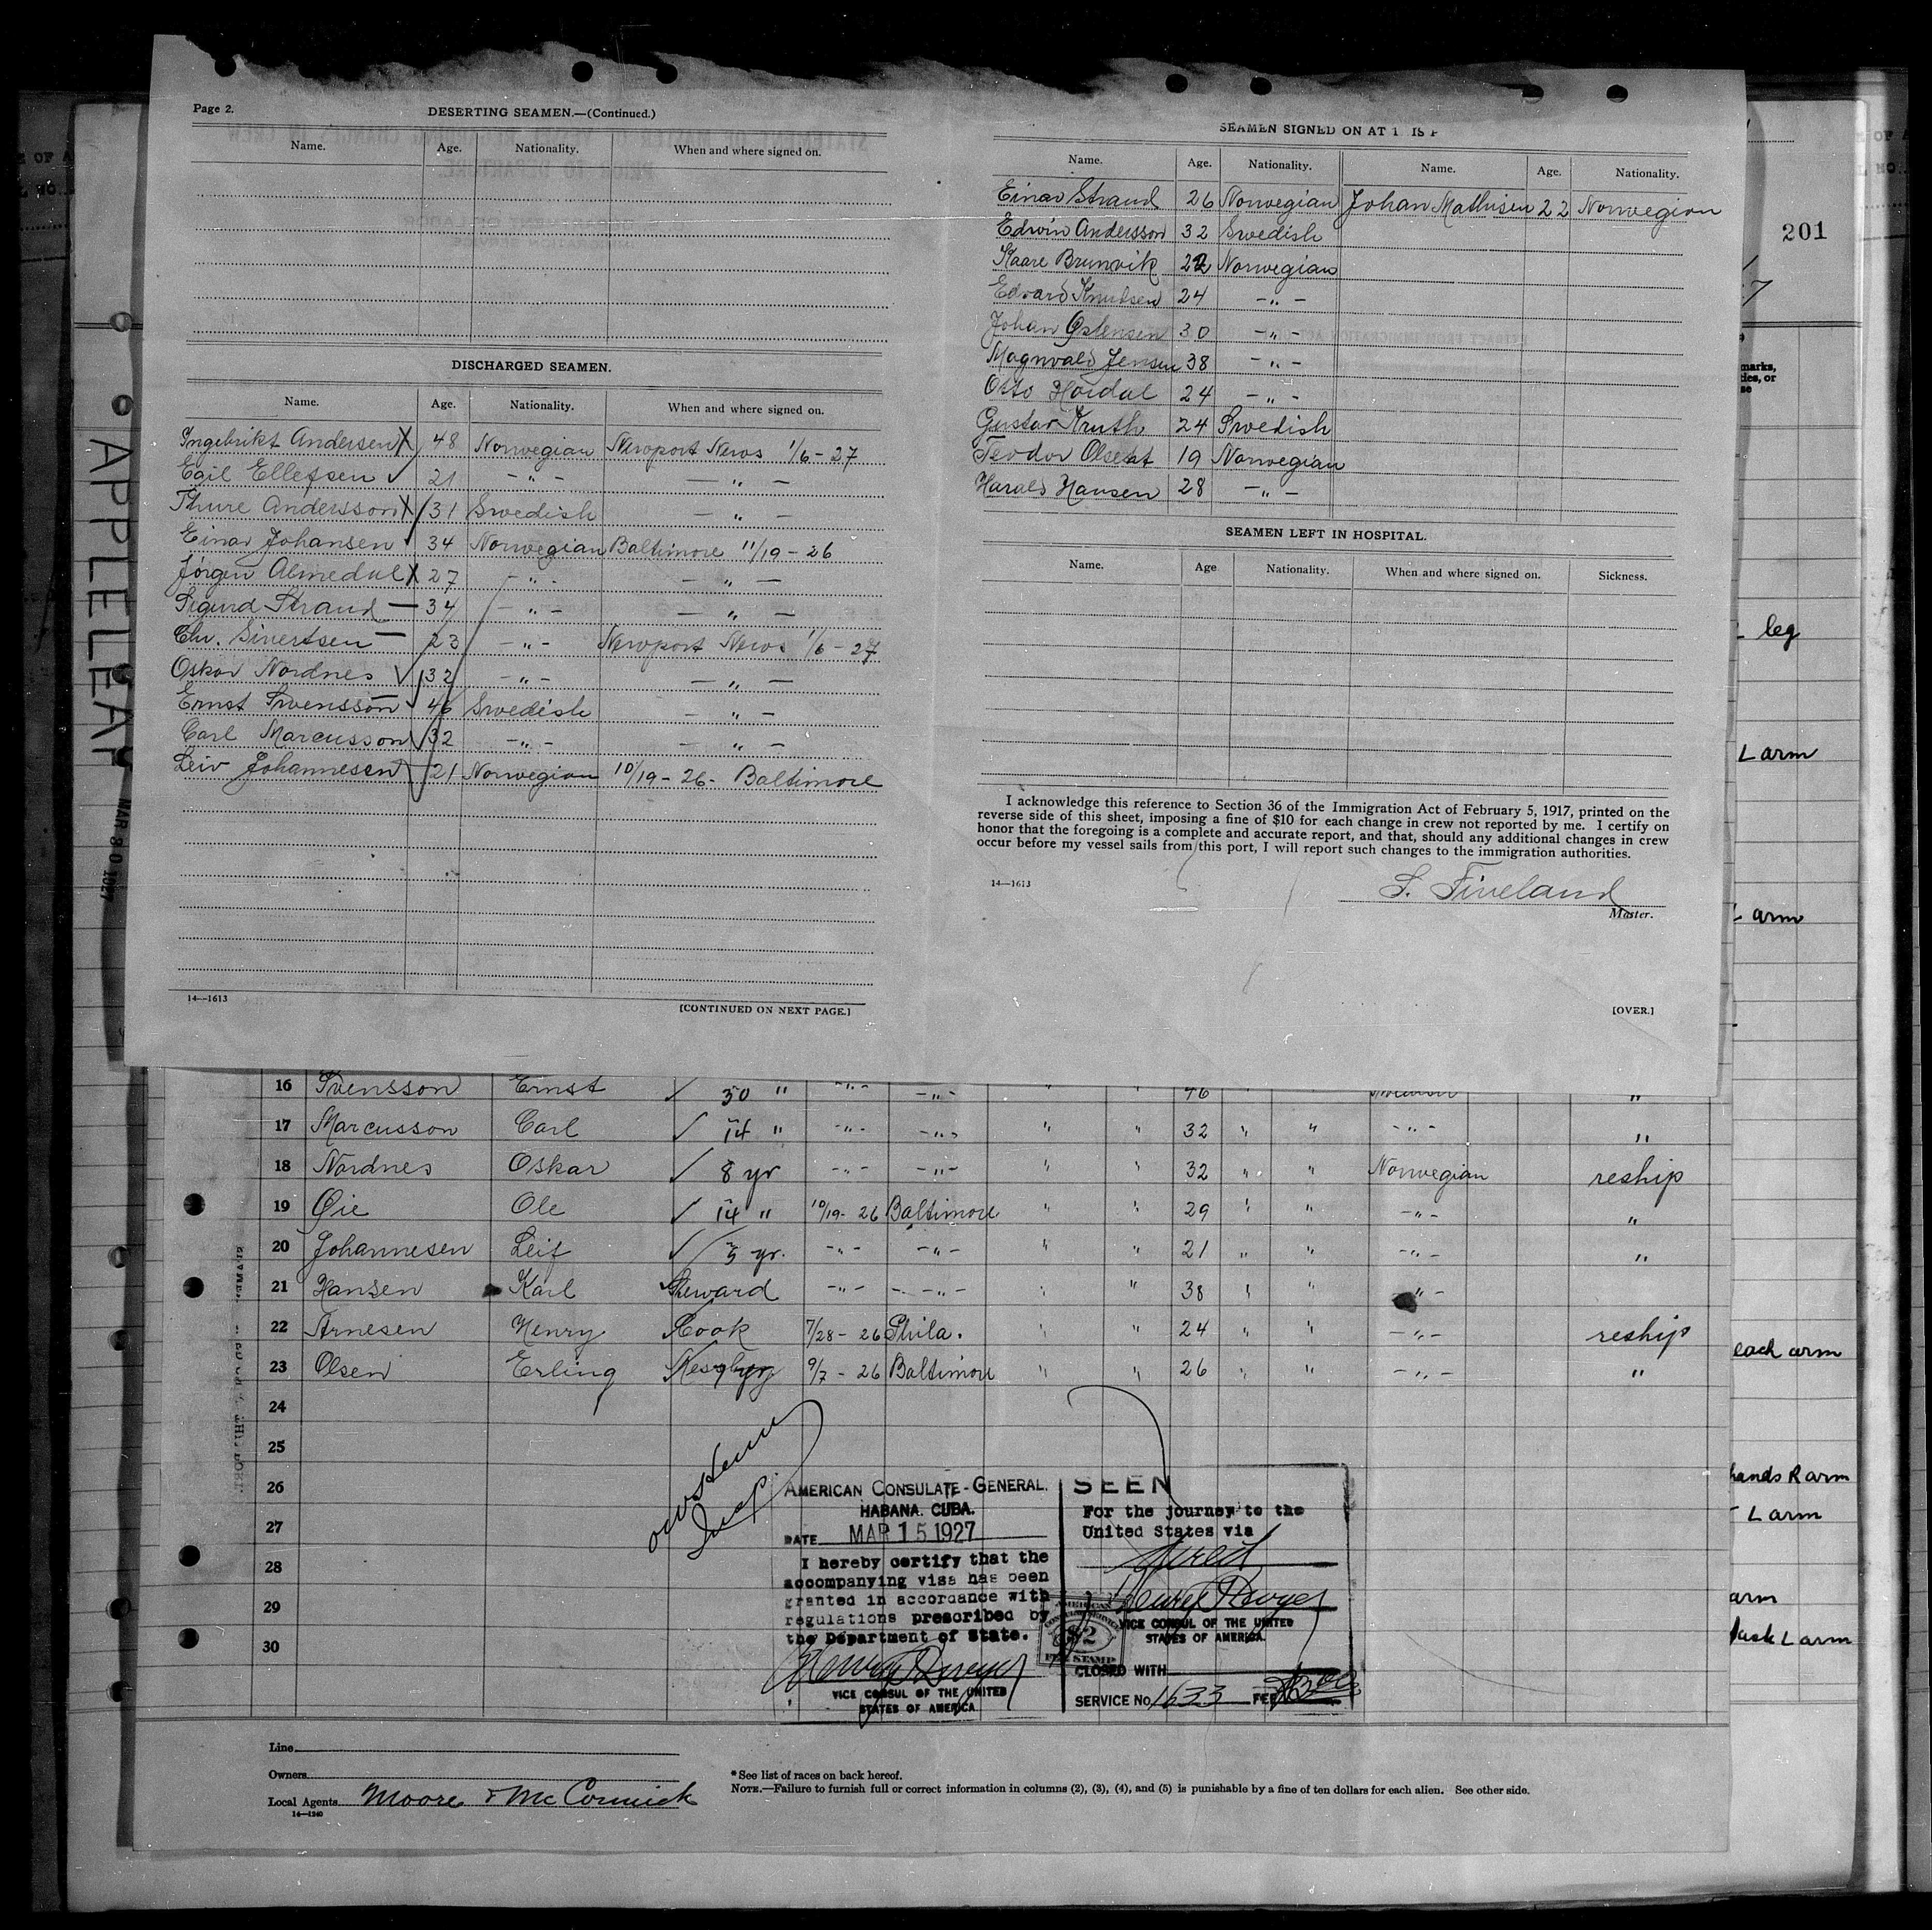 Page 2.
DESERTING SEAMEN.—(Continued.)
Name. Age. Nationality. When and where signed on.
DISCHARGED SEAMEN.
Name. Age. Nationality. When and where signed on.
Ingebrikt Andersen X 48 Norwegian Newport News 1/6 - 27
Egil Ellefsen ✓ 21 - " - — " —
Thure Andersson X 31 Swedish — " —
Einar Johansen ✓ 34 Norwegian Baltimore 11/19 - 26
Jørgen Almedal X 27 - " - — " —
Sigurd Strand — 34 - " - — " —
Chr. Sivertsen — 23 - " - Newport News 1/6 - 27
Oskar Nordnes ✓ 32 - " - — " —
Ernst Svensson ✓ 46 Swedish — " —
Carl Marcusson ✓ 32 - " - — " —
Leiv Johannesen 21 Norwegian 10/19 - 26 - Baltimore
14—1613
[CONTINUED ON NEXT PAGE.]
SEAMEN SIGNED ON AT
Name. Age. Nationality. Name. Age. Nationality.
Einar Strand 26 Norwegian Johan Mathisen 22 Norwegian
Edwin Andersson 32 Swedish
Kaare Brunvik 22 Norwegian
Edvard Knutsen 24 - " -
Johan Østensen 30 - " -
Magnvald Jensen 38 - " -
Otto Hordal 24 - " -
Gustav Kruth 24 Swedish
Teodor 19 Norwegian
Harald Hansen 28 - " -
SEAMEN LEFT IN HOSPITAL.
Name. Age Nationality. When and where signed on. Sickness.
I acknowledge this reference to Section 36 of the Immigration Act of February 5, 1917, printed on the
reverse side of this sheet, imposing a fine of $10 for each change in crew not reported by me. I certify on
honor that the foregoing is a complete and accurate report, and that, should any additional changes in crew
occur before my vessel sails from this port, I will report such changes to the immigration authorities.
14—1613
S. Fineland
Master.
[OVER.]
APPLELEAF
MAR 30 1927
201
marks,
des, or
se
leg
L arm
L arm
each arm
hands R arm
L arm
arm
L arm
16 Svensson Ernst ✓ 30 " - " - - " - " " 46 " " "
17 Marcusson Carl ✓ 14 " - " - - " - " " 32 " " - " - "
18 Nordnes Oskar ✓ 8 yr - " - - " - " " 32 " " Norwegian reship
19 Øie Ole ✓ 14 " 10/19 - 26 Baltimore " " 29 " " - " - "
20 Johannesen Leif ✓ 5 yr. - " - - " - " " 21 " " - " - "
21 Hansen Karl Steward - " - - " - " " 38 " " - " -
22 Arnesen Henry Cook 7/28 - 26 Phila. " " 24 " " - " - reship
23 Olsen Erling Messboy 9/7 - 26 Baltimore " " 26 " " - " - "
24
25
26
27
28
29
30
AMERICAN CONSULATE-GENERAL.
HABANA. CUBA.
DATE MAR 15 1927
I hereby certify that the
accompanying visa has been
granted in accordance with
regulations prescribed by
the Department of State.
VICE CONSUL OF THE UNITED
STATES OF AMERICA
SEEN
For the journey to the
United States via
direct
VICE CONSUL OF THE UNITED
STATES OF AMERICA.
CLOSED WITH
SERVICE No. 1633 FEE
AMERICAN
CONSULAR SERVICE
$2
FEE STAMP
Line
Owners
Local Agents Moore & McCormick
14—1240
*See list of races on back hereof.
NOTE.—Failure to furnish full or correct information in columns (2), (3), (4), and (5) is punishable by a fine of ten dollars for each alien. See other side.